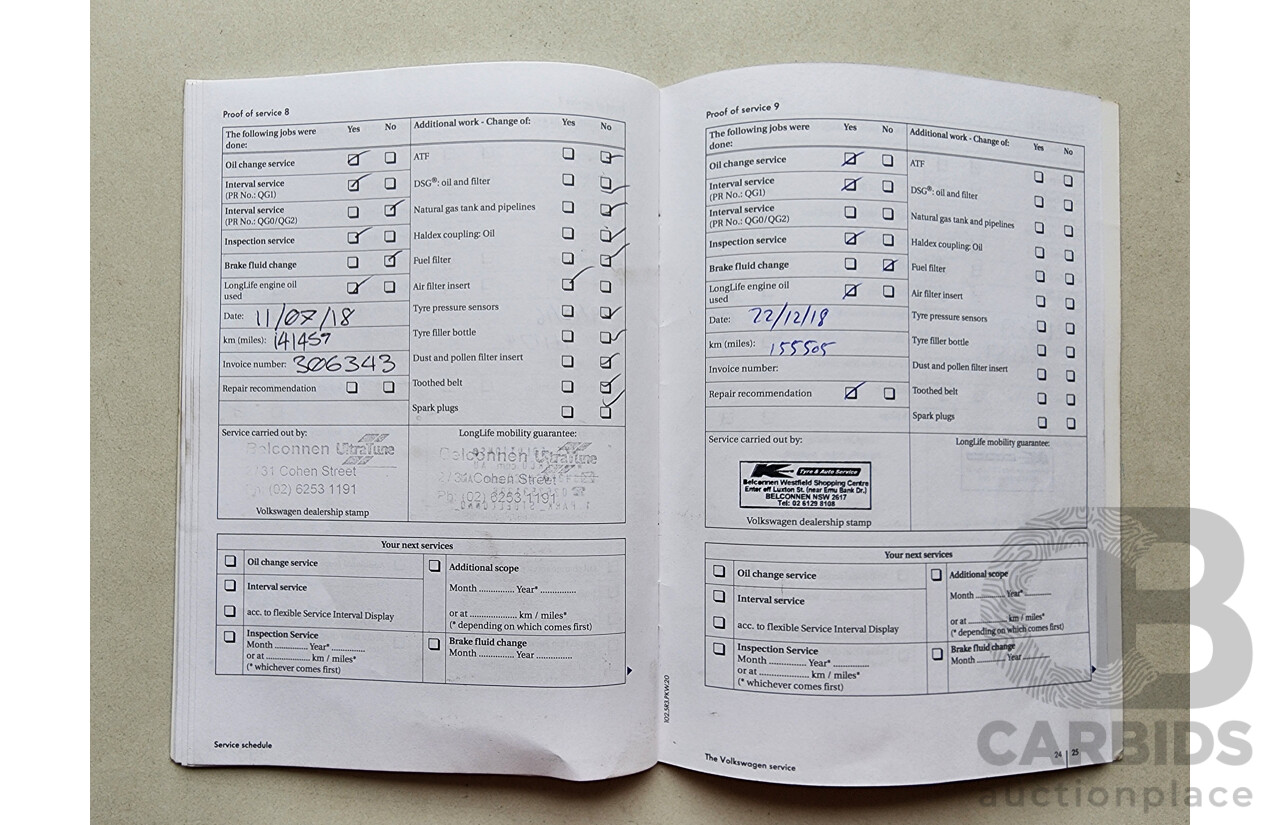 Proof of service 8
The following jobs were done: Yes No
Additional work - Change of: Yes No
Oil change service
Interval service
(PR No.: QG1)
Interval service
(PR No.: QG0/QG2)
Inspection service
Brake fluid change
LongLife engine oil
used
Date: 11/07/18
km (miles): 141459
Invoice number: 306343
Repair recommendation
ATF
DSG®: oil and filter
Natural gas tank and pipelines
Haldex coupling: Oil
Fuel filter
Air filter insert
Tyre pressure sensors
Tyre filler bottle
Dust and pollen filter insert
Toothed belt
Spark plugs
Service carried out by:
Belconnen UltraTune
2/31 Cohen Street
Ph: (02) 6253 1191
Volkswagen dealership stamp
LongLife mobility guarantee:
Belconnen UltraTune
2/31 Cohen Street
Ph: (02) 6253 1191
Your next services
Oil change service
Interval service
acc. to flexible Service Interval Display
Inspection Service
Month ............ Year* ............
or at ................ km / miles*
(* whichever comes first)
Additional scope
Month ............ Year* ............
or at ................ km / miles*
(* depending on which comes first)
Brake fluid change
Month ............ Year ............
Service schedule
102.5R3.PKW.20
Proof of service 9
The following jobs were
done: Yes No
Additional work - Change of: Yes No
Oil change service
Interval service
(PR No.: QG1)
Interval service
(PR No.: QG0/QG2)
Inspection service
Brake fluid change
LongLife engine oil
used
Date: 22/12/18
km (miles): 155505
Invoice number:
Repair recommendation
ATF
DSG®: oil and filter
Natural gas tank and pipelines
Haldex coupling: Oil
Fuel filter
Air filter insert
Tyre pressure sensors
Tyre filler bottle
Dust and pollen filter insert
Toothed belt
Spark plugs
Service carried out by:
K Tyre & Auto Service
Belconnen Westfield Shopping Centre
Enter off Luxton St. (near Emu Bank Dr.)
BELCONNEN NSW 2617
Tel: 02 6129 8108
Volkswagen dealership stamp
LongLife mobility guarantee:
Your next services
Oil change service
Interval service
acc. to flexible Service Interval Display
Inspection Service
Month ............ Year* ............
or at ................ km / miles*
(* whichever comes first)
Additional scope
Month ............ Year* ............
or at ................ km / miles*
(* depending on which comes first)
Brake fluid change
Month ............ Year ............
The Volkswagen service
24 | 25
CARBIDS
auctionplace